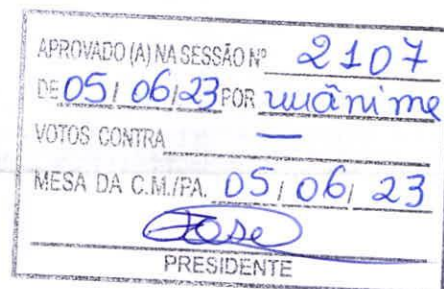 APROVADO (A) NA SESSÃO Nº 2107
DE 05/06/23 POR uuânime
VOTOS CONTRA —
MESA DA C.M./PA. 05/06/23
Jose
PRESIDENTE